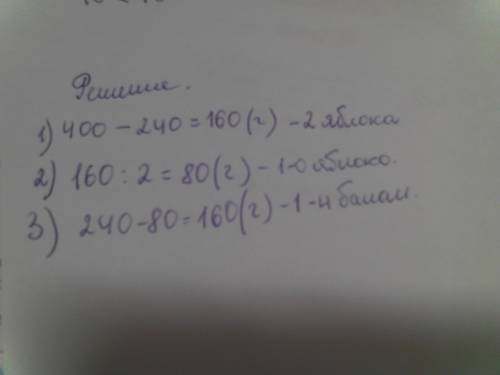 Решение.
1) 400 - 240 = 160 (г) - 2 яблока
2) 160 : 2 = 80 (г) - 1-о яблоко.
3) 240 - 80 = 160 (г) - 1-н банан.